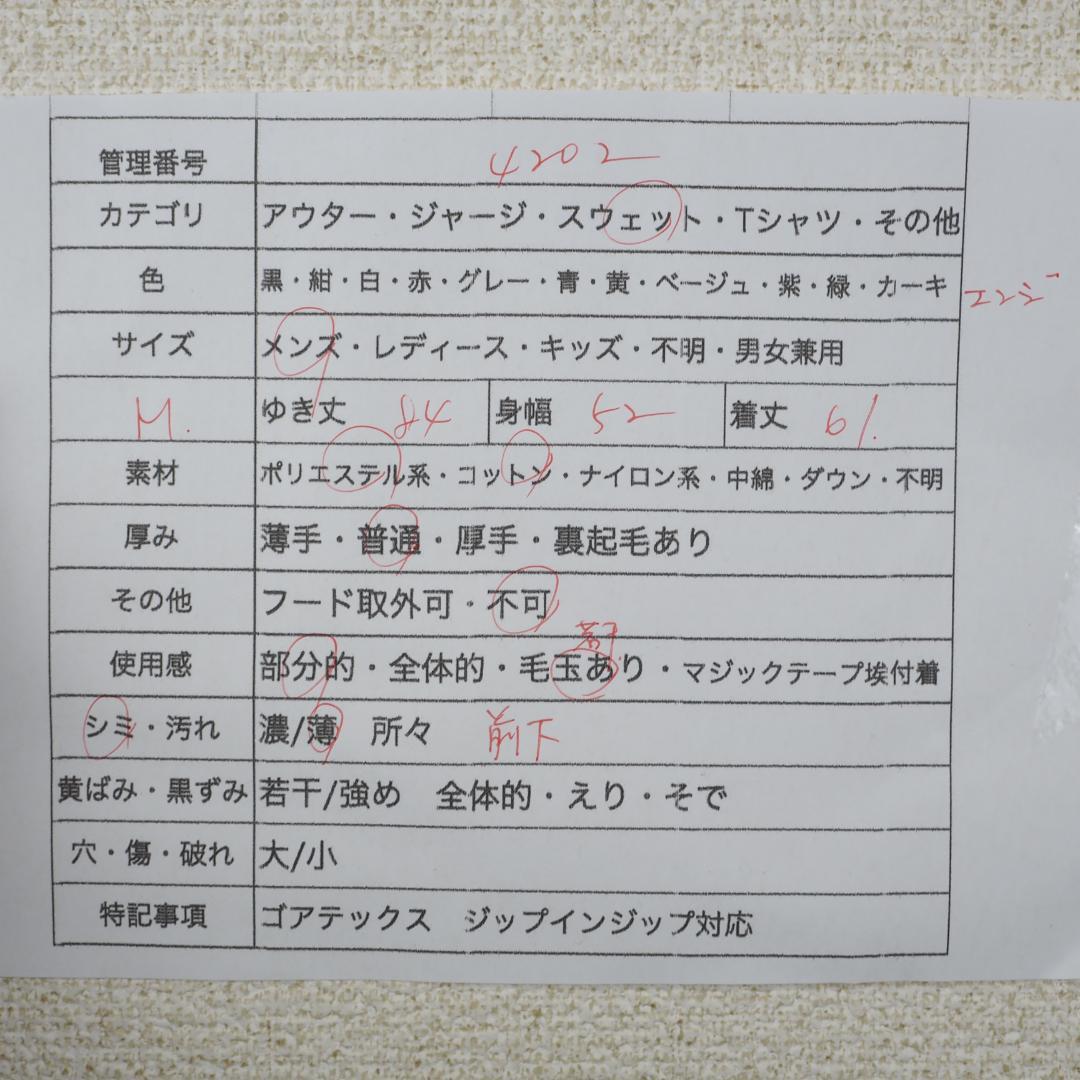 管理番号 4202
カテゴリ アウター・ジャージ・スウェット・Tシャツ・その他
色 黒・紺・白・赤・グレー・青・黄・ベージュ・紫・緑・カーキ エンジ
サイズ メンズ・レディース・キッズ・不明・男女兼用
M. ゆき丈 84 身幅 52 着丈 61.
素材 ポリエステル系・コットン・ナイロン系・中綿・ダウン・不明
厚み 薄手・普通・厚手・裏起毛あり
その他 フード取外可・不可
若干
使用感 部分的・全体的・毛玉あり・マジックテープ埃付着
シミ・汚れ 濃/薄 所々 前下
黄ばみ・黒ずみ 若干/強め 全体的・えり・そで
穴・傷・破れ 大/小
特記事項 ゴアテックス ジップインジップ対応